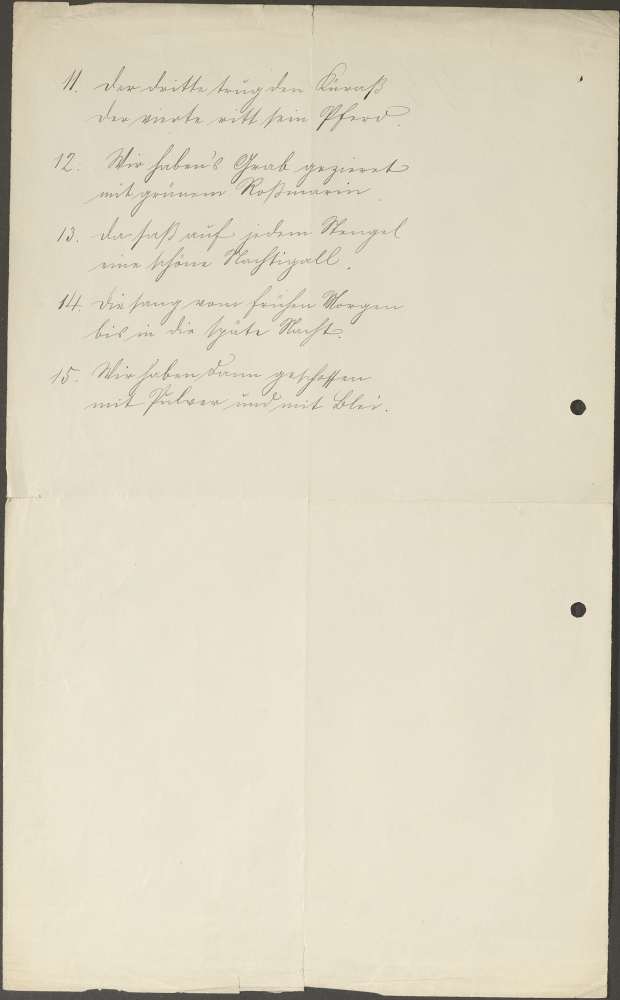 11. Der dritte trug den Küraß
der vierte ritt sein Pferd.
12. Wir haben's Grab gezieret
mit grünem Roßmarin.
13. da saß auf jedem Stengel
eine schöne Nachtigall.
14. die sang vom frühen Morgen
bis in die späte Nacht.
15. Wir haben dann geschossen
mit Pulver und mit Blei.